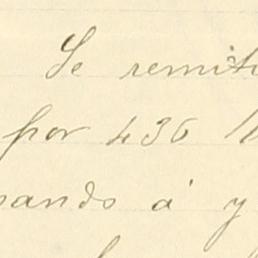 Se remiti
por 436
pands á y